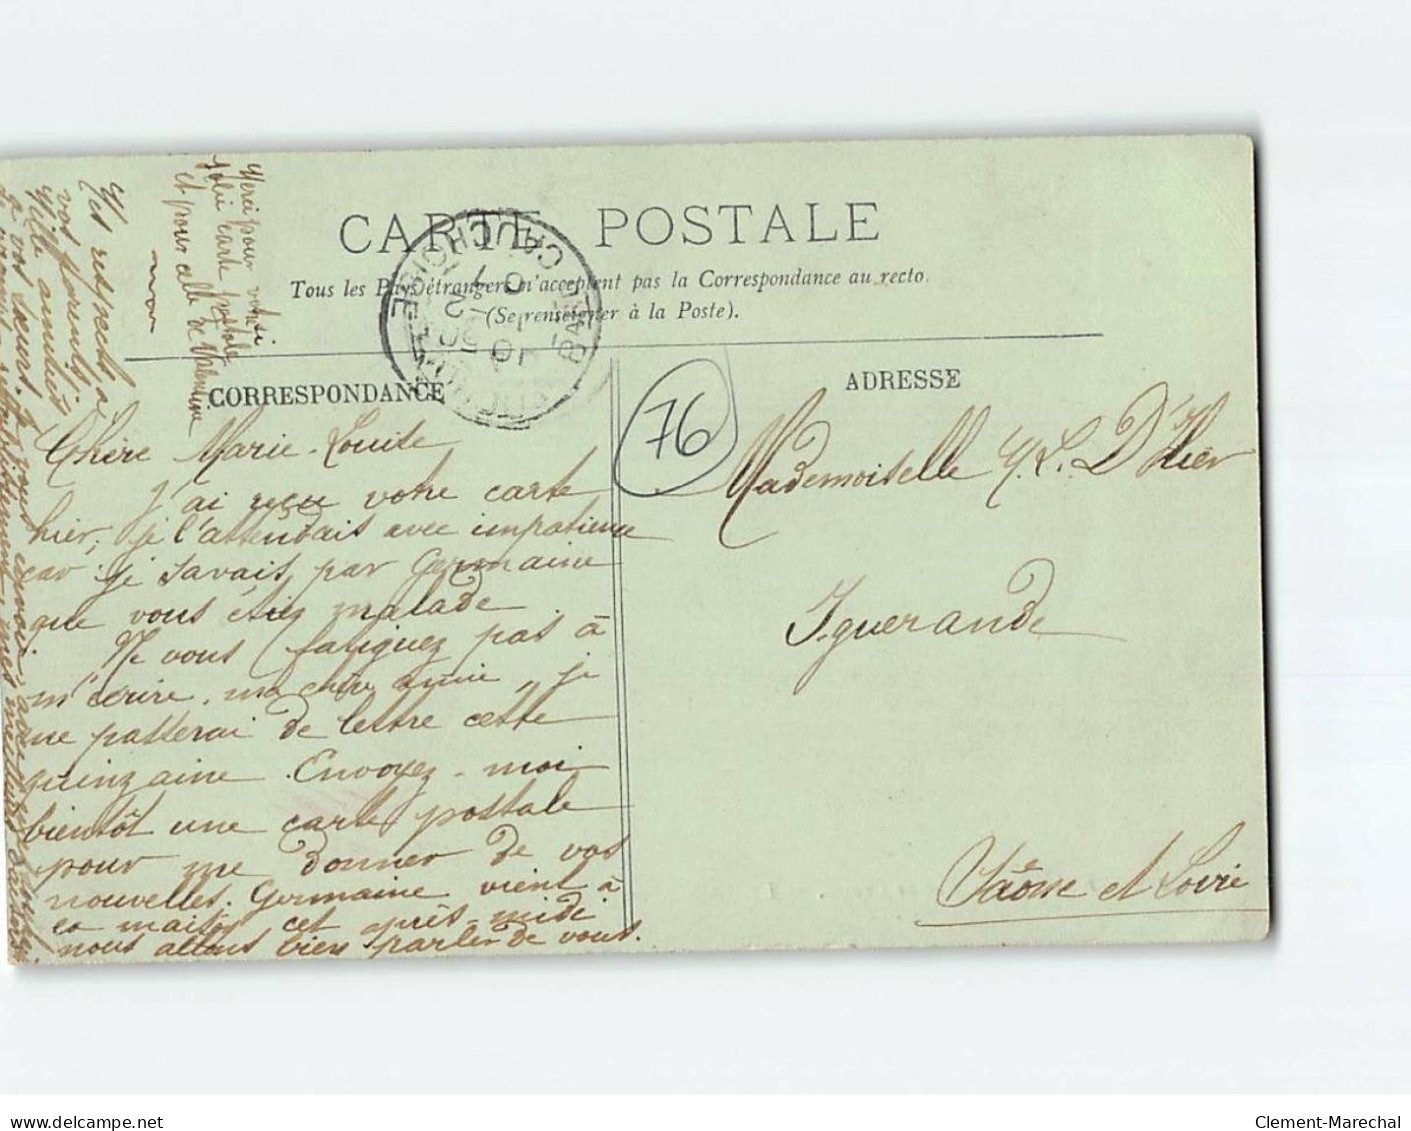 CARTE POSTALE
Tous les Pays étrangers n'acceptent pas la Correspondance au recto.
(Se renseigner à la Poste).
CORRESPONDANCE
ADRESSE
76
Merci pour votre si
jolie carte postale
et pour celle de Valentine
Mes respects à
vos parents
Mille amitiés
à vos sœurs.
Chère Marie-Louise
J'ai reçu votre carte
hier, je l'attendais avec impatience
car je savais par Germaine
que vous étiez malade
Ne vous fatiguez pas à
m'écrire, ma chère amie, je
me passerai de lettre cette
quinzaine. Envoyez-moi
bientôt une carte postale
pour me donner de vos
nouvelles. Germaine vient à
la maison cet après-midi
nous allons bien parler de vous.
Mademoiselle M. L. D'Hier
Iguerande
Saône et Loire
delcampe.net
Clement-Marechal